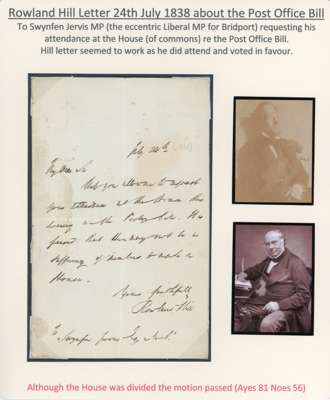 Rowland Hill Letter 24th July 1838 about the Post Office Bill
To Swynfen Jervis MP (the eccentric Liberal MP for Bridport) requesting his
attendance at the House (of commons) re the Post Office Bill.
Hill letter seemed to work as he did attend and voted in favour.
July 24th
My dear Sir
Will you allow me to request
your attendance at the House this
evening on the Postage Bill. It is
feared that there may not be a
sufficiency of members to make a
House.
Yours faithfully
Rowland Hill
To Swynfen Jervis Esq
Although the House was divided the motion passed (Ayes 81 Noes 56)